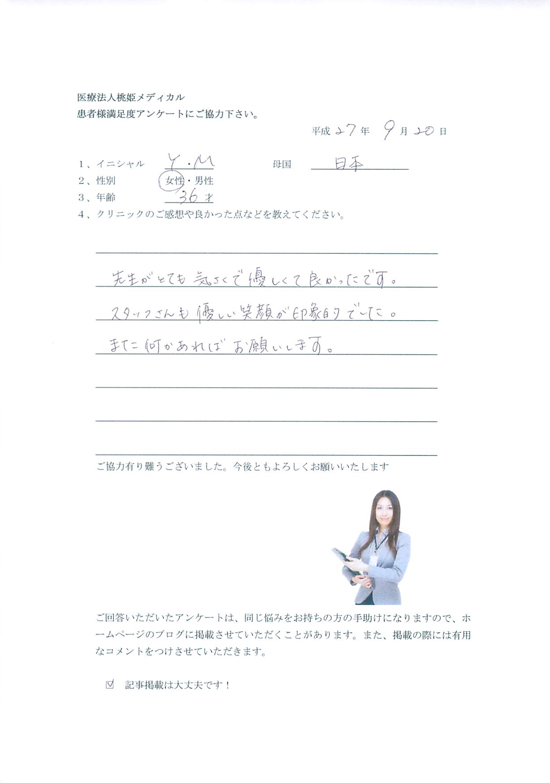 医療法人桃姫メディカル
患者様満足度アンケートにご協力下さい。
平成 27 年 9 月 20 日
1、イニシャル Y.M 母国 日本
2、性別 女性・男性
3、年齢 36才
4、クリニックのご感想や良かった点などを教えてください。
先生がとても気さくで優しくて良かったです。
スタッフさんも優しい笑顔が印象的でした。
また何かあればお願いします。
ご協力有り難うございました。今後ともよろしくお願いいたします
ご回答いただいたアンケートは、同じ悩みをお持ちの方の手助けになりますので、ホ
ームページのブログに掲載させていただくことがあります。また、掲載の際には有用
なコメントをつけさせていただきます。
☑ 記事掲載は大丈夫です！